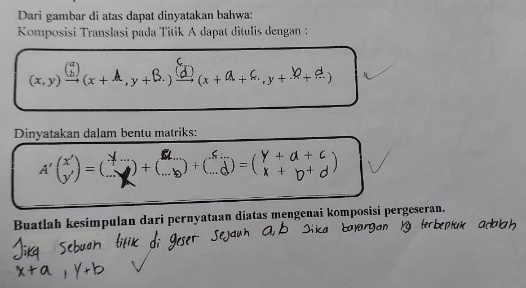 Dari gambar di atas dapat dinyatakan bahwa:
Komposisi Translasi pada Titik A dapat ditulis dengan :
(x, y) (a b) → (x + A, y + B.) (c d) → (x + a + c., y + b + d.)
Dinyatakan dalam bentu matriks:
A' (x' y') = (y... ...x) + (a... ...b) + (.c... ...d) = (y + a + c x + b + d)
Buatlah kesimpulan dari pernyataan diatas mengenai komposisi pergeseran.
Jika sebuah titik di geser sejauh a,b Jika bayangan yg terbentuk adalah
x+a , y+b